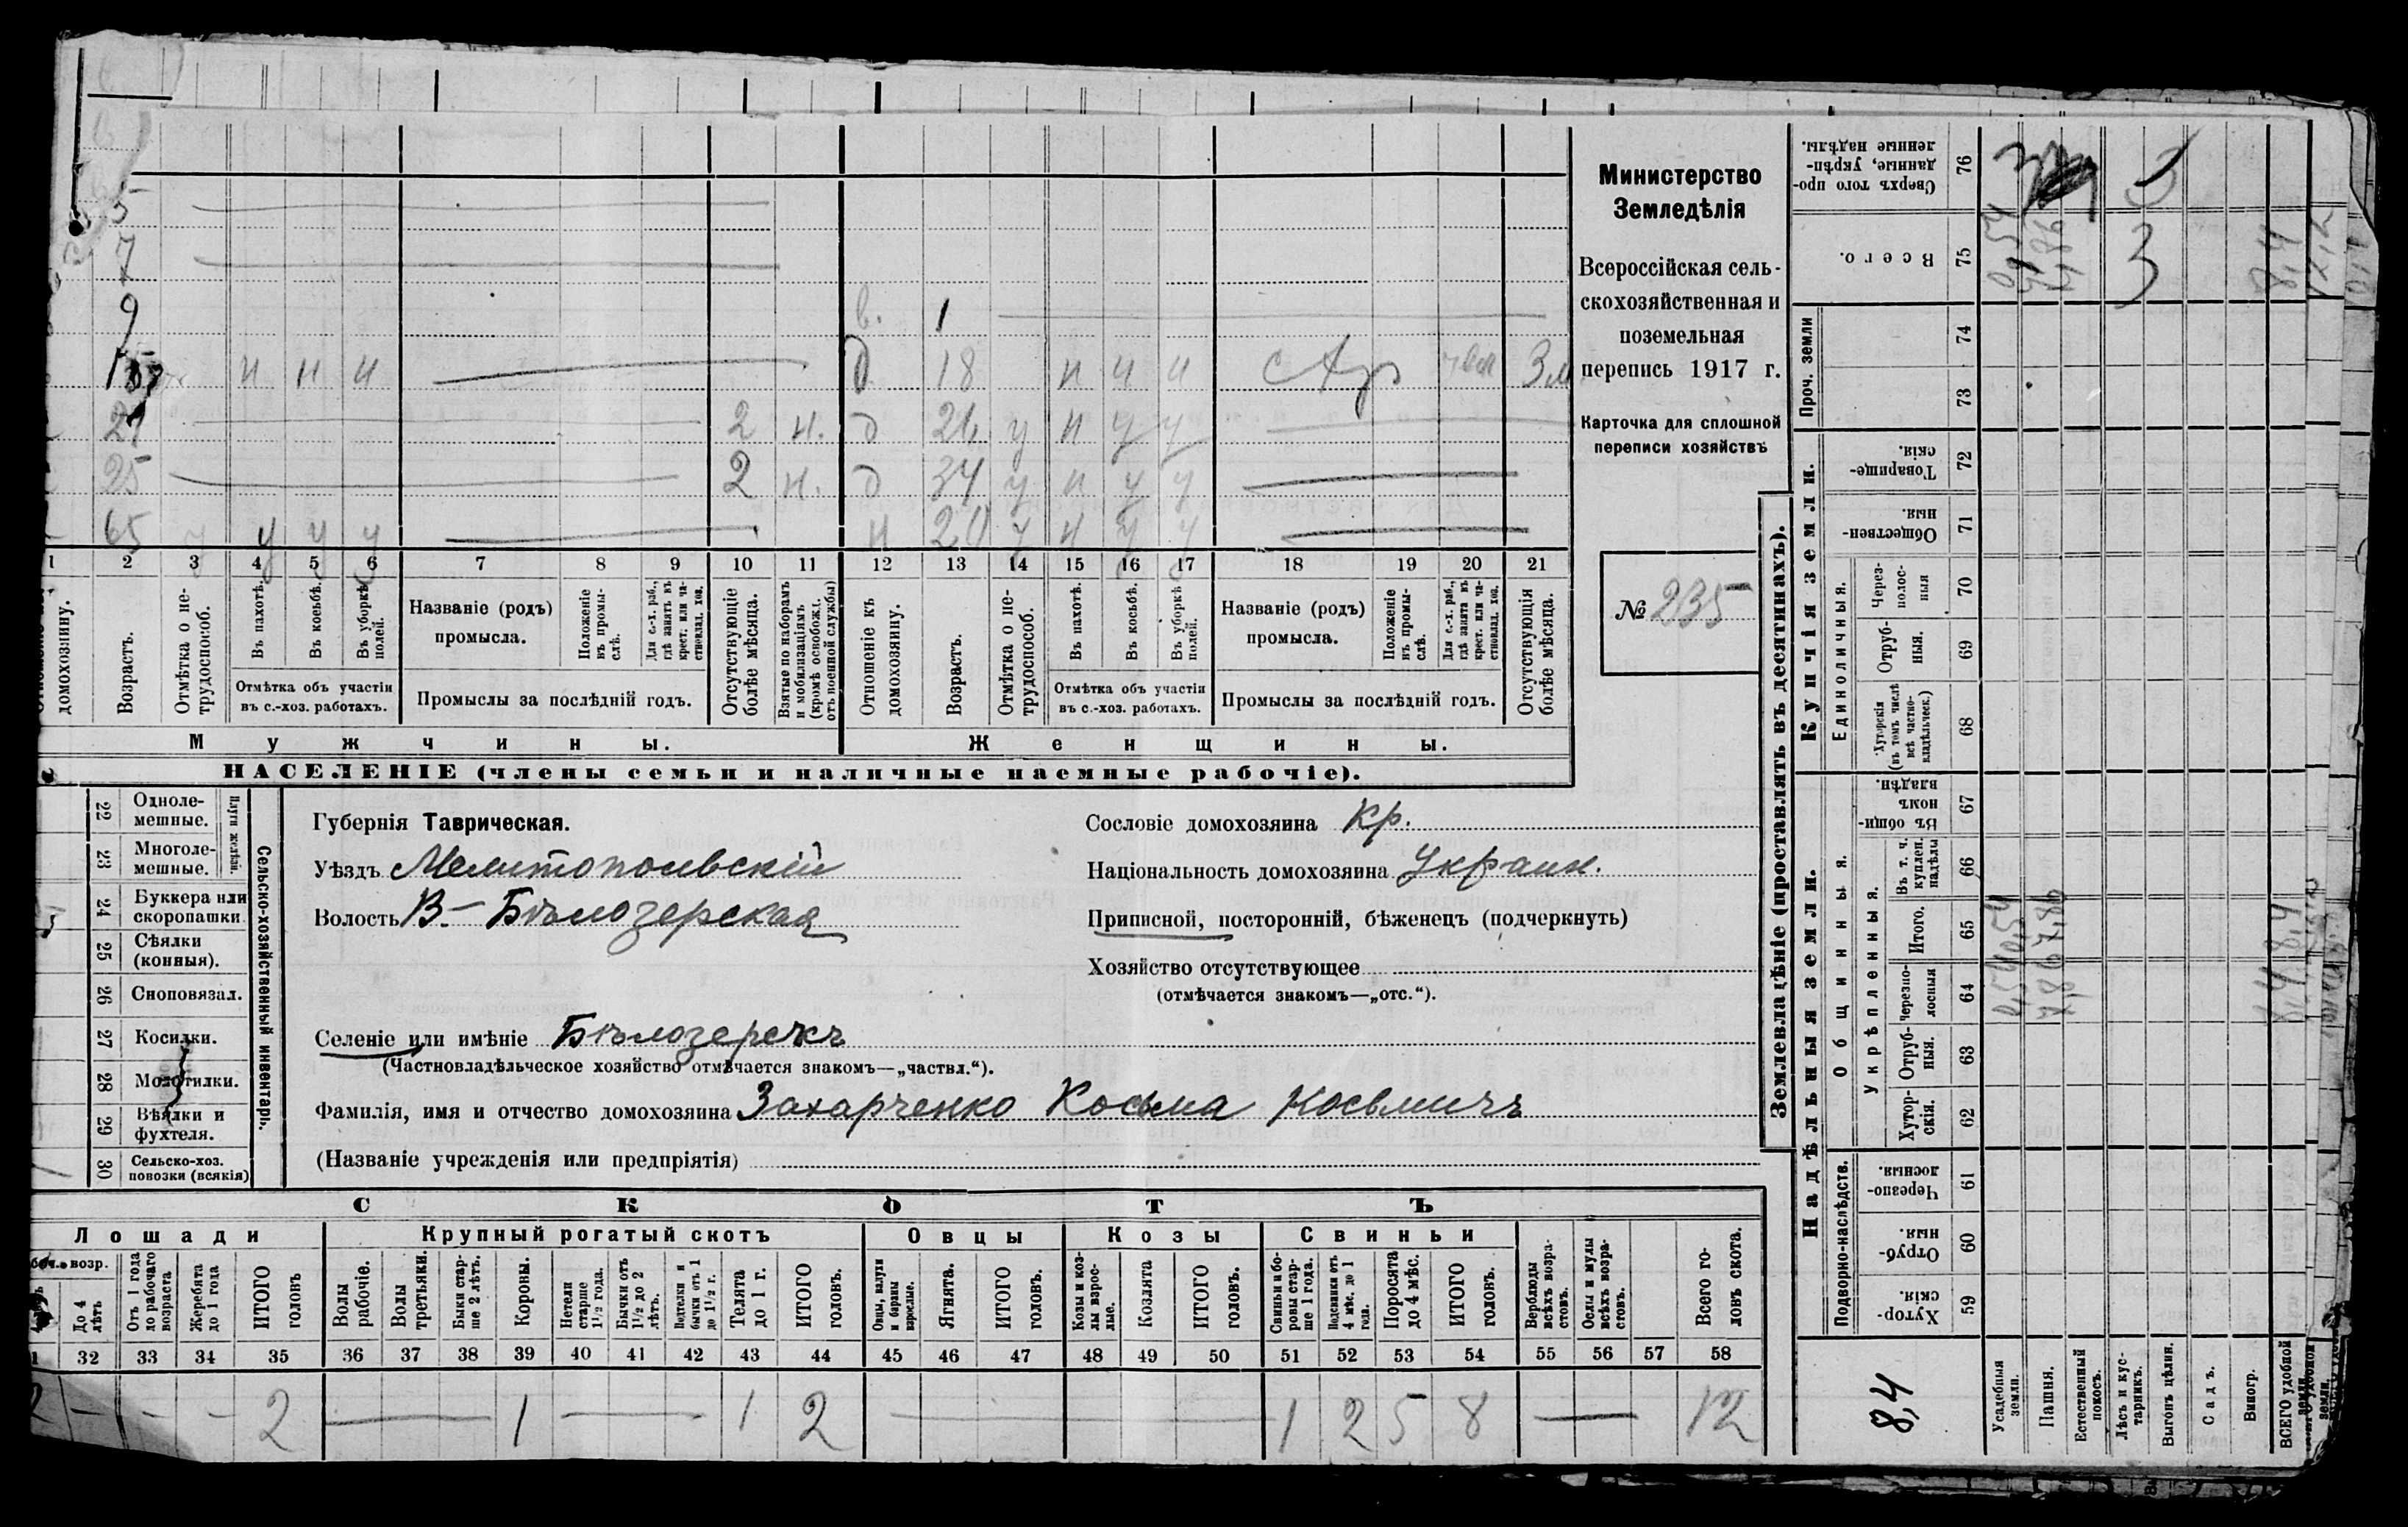 Министерство
Земледѣлія
Всероссійская сель-
скохозяйственная и
поземельная
перепись 1917 г.
Карточка для сплошной
переписи хозяйствъ
№ 235
5
7
9
в. 1
н н н
д 18 н н н
21 2 н. д у н у у
25 2 н. д 34 у н у у
65 у у у у н у н у у
1 2 3 4 5 6 7 8 9 10 11 12 13 14 15 16 17 18 19 20 21
домохозяину.
Возрастъ.
Отмѣтка о не-
трудоспособ.
Въ пахотѣ.
Въ косьбѣ.
Въ уборкѣ
полей.
Отмѣтка объ участіи
въ с.-хоз. работахъ.
Названіе (родъ)
промысла.
Положеніе
въ промы-
слѣ.
Для с.-х. раб.,
гдѣ занятъ въ
крест. или ча-
стновлад. хоз.
Промыслы за послѣдній годъ.
Отсутствующіе
болѣе мѣсяца.
Взятые по наборамъ
и мобилизаціямъ
(кромѣ освобожд.
отъ военной службы)
Отношеніе къ
домохозяину.
Возрастъ.
Отмѣтка о не-
трудоспособ.
Въ пахотѣ.
Въ косьбѣ.
Въ уборкѣ
полей.
Отмѣтка объ участіи
въ с.-хоз. работахъ.
Названіе (родъ)
промысла.
Положеніе
въ промы-
слѣ.
Для с.-х. раб.,
гдѣ занята въ
крест. или ча-
стновлад. хоз.
Промыслы за послѣдній годъ.
Отсутствующія
болѣе мѣсяца.
Мужчины.
Женщины.
НАСЕЛЕНІЕ (члены семьи и наличные наемные рабочіе).
22 Одноле-
мешные.
23 Многоле-
мешные.
Плуги желѣзн.
24 Буккера или
скоропашки
25 Сѣялки
(конныя).
26 Сноповязал.
27 Косилки.
28 Молотилки.
29 Вѣялки и
фухтеля.
30 Сельско-хоз.
повозки (всякія)
Сельско-хозяйственный инвентарь.
Губернія Таврическая.
Уѣздъ Мелитопольскій
Волость В-Бѣлозерская
Сословіе домохозяина Кр.
Національность домохозяина Украин.
Приписной, посторонній, бѣженецъ (подчеркнуть)
Хозяйство отсутствующее
(отмѣчается знакомъ—„отс.“).
Селеніе или имѣніе
(Частновладѣльческое хозяйство отмѣчается знакомъ—„частвл.“).
Фамилія, имя и отчество домохозяина Захарченко Косьма Косьмичъ
(Названіе учрежденія или предпріятія)
СКОТЪ
Лошади
Крупный рогатый скотъ
Овцы
Козы
Свиньи
До 4
лѣтъ
Отъ 1 года
до рабочаго
возраста
Жеребята
до 1 года
ИТОГО
головъ
Волы
рабочіе.
Волы
третьяки.
Быки стар-
ше 2 лѣтъ.
Коровы.
Нетели
старше
1½ года.
Бычки отъ
1½ до 2
лѣтъ.
Подтелки и
бычки отъ 1
до 1½ г.
Телята
до 1 г.
ИТОГО
головъ.
Овцы, валухи
и бараны
взрослые.
Ягнята.
ИТОГО
головъ.
Козы и коз-
лы взрос-
лые.
Козлята
ИТОГО
головъ.
Свиньи и бо-
ровы стар-
ше 1 года.
Подсвинки отъ
4 мѣс. до 1
года.
Поросята
до 4 мѣс.
ИТОГО
головъ.
Верблюды
всѣхъ возра-
стовъ.
Ослы и мулы
всѣхъ возра-
стовъ.
Всего го-
ловъ скота.
32 33 34 35 36 37 38 39 40 41 42 43 44 45 46 47 48 49 50 51 52 53 54 55 56 57 58
2 — — — 2 — 1 — 1 2 — 1 2 5 8 — 12
Землевладѣніе (проставлять въ десятинахъ).
Купчія земли.
Надѣльныя земли.
Сверхъ того про-
данные, укрѣп-
ленные надѣлы.
76
Всего.
75
Проч. земли
74
73
Товарище-
скія
72
Обществен-
ныя.
71
Единоличныя.
Через-
полос-
ныя
70
Отруб-
ныя.
69
Хуторскія
(въ томъ числѣ
всѣ частно-
владѣльческ.)
68
Общинныя.
Въ общи-
номъ
владѣн.
67
Укрѣпленныя.
Въ т. ч.
куплен.
надѣлы
66
Итого.
65
Черезпо-
лосныя
64
Отруб-
ныя.
63
Хутор-
скія.
62
Подворно-наслѣдств.
Черезпо-
лосныя.
61
Отруб-
ныя.
60
Хутор-
скія.
59
Усадебныя
земли.
Пашня.
Естественный
покосъ.
Лѣсъ и кус-
тарникъ.
Выгонъ цѣлин.
Садъ.
Виногр.
ВСЕГО удобной
земли.
8,4
0,54 0,54
7,86 7,86
3
8,4 8,4